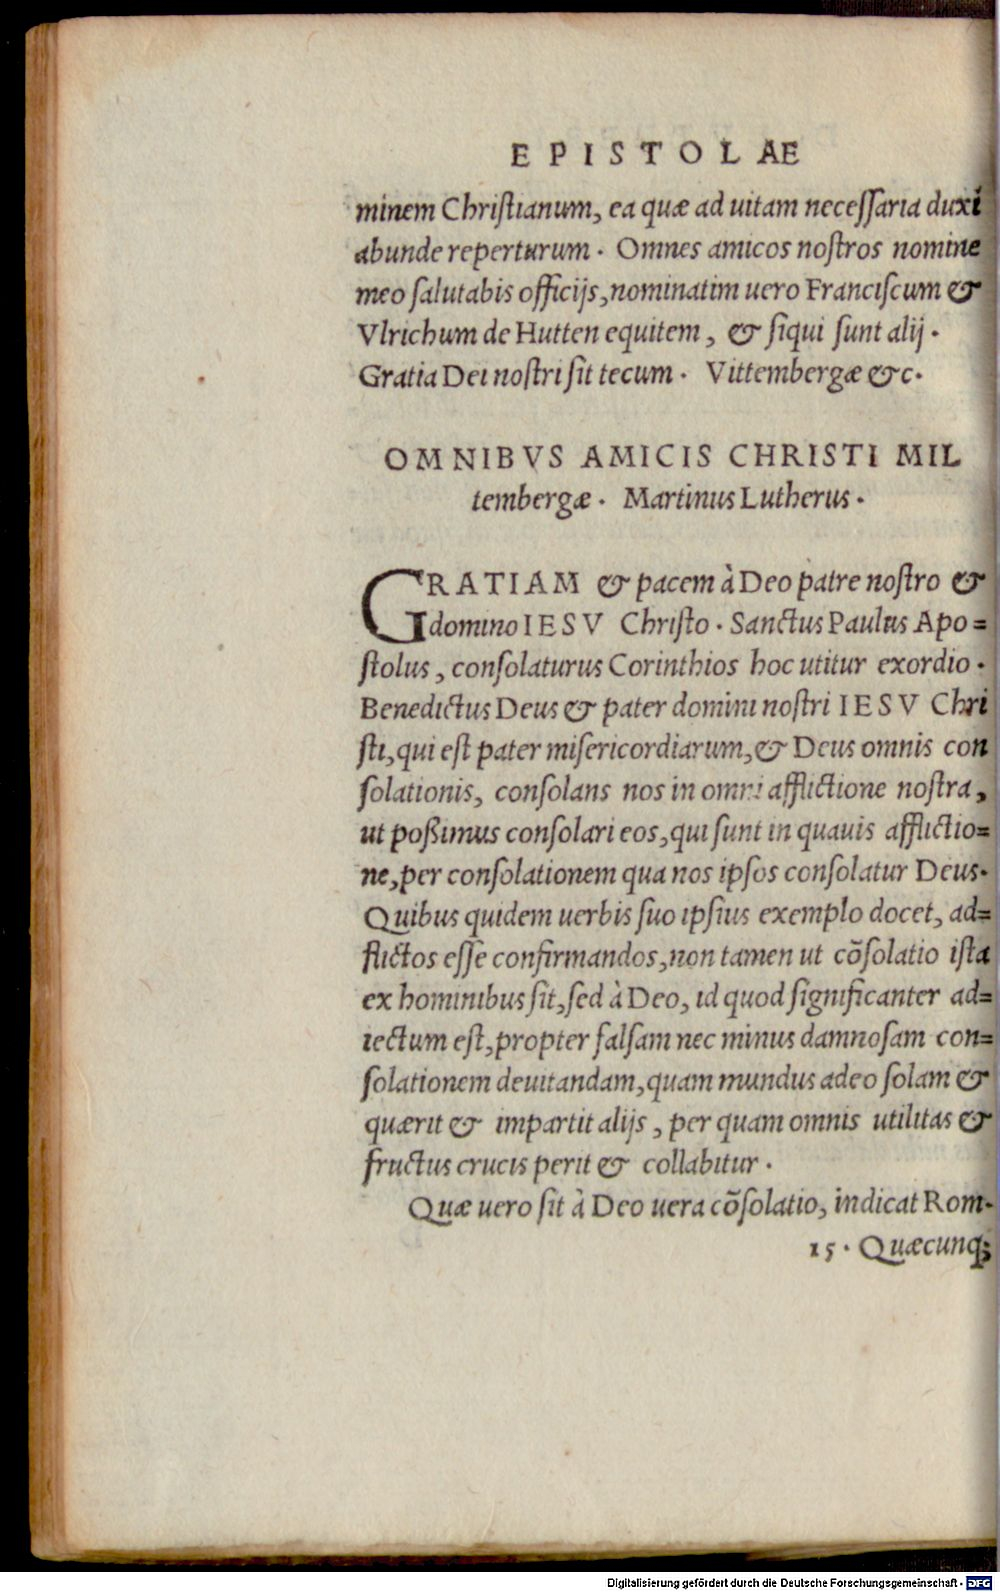 EPISTOLAE
minem Christianum, ea quæ ad uitam necessaria duxi
abunde reperturum. Omnes amicos nostros nomine
meo salutabis officijs, nominatim uero Franciscum &
Vlrichum de Hutten equitem, & siqui sunt alij.
Gratia Dei nostri sit tecum. Vittembergæ &c.
OMNIBVS AMICIS CHRISTI MIL
tembergæ. Martinus Lutherus.
GRATIAM & pacem à Deo patre nostro &
domino IESV Christo. Sanctus Paulus Apo=
stolus, consolaturus Corinthios hoc utitur exordio.
Benedictus Deus & pater domini nostri IESV Chri
sti, qui est pater misericordiarum, & Deus omnis con
solationis, consolans nos in omni afflictione nostra,
ut poßimus consolari eos, qui sunt in quauis afflictio=
ne, per consolationem qua nos ipsos consolatur Deus.
Quibus quidem uerbis suo ipsius exemplo docet, ad=
flictos esse confirmandos, non tamen ut cõsolatio ista
ex hominibus sit, sed à Deo, id quod significanter ad=
iectum est, propter falsam nec minus damnosam con=
solationem deuitandam, quam mundus adeo solam &
quærit & impartit alijs, per quam omnis utilitas &
fructus crucis perit & collabitur.
Quæ uero sit à Deo uera cõsolatio, indicat Rom.
15. Quæcunq;
Digitalisierung gefördert durch die Deutsche Forschungsgemeinschaft - DFG